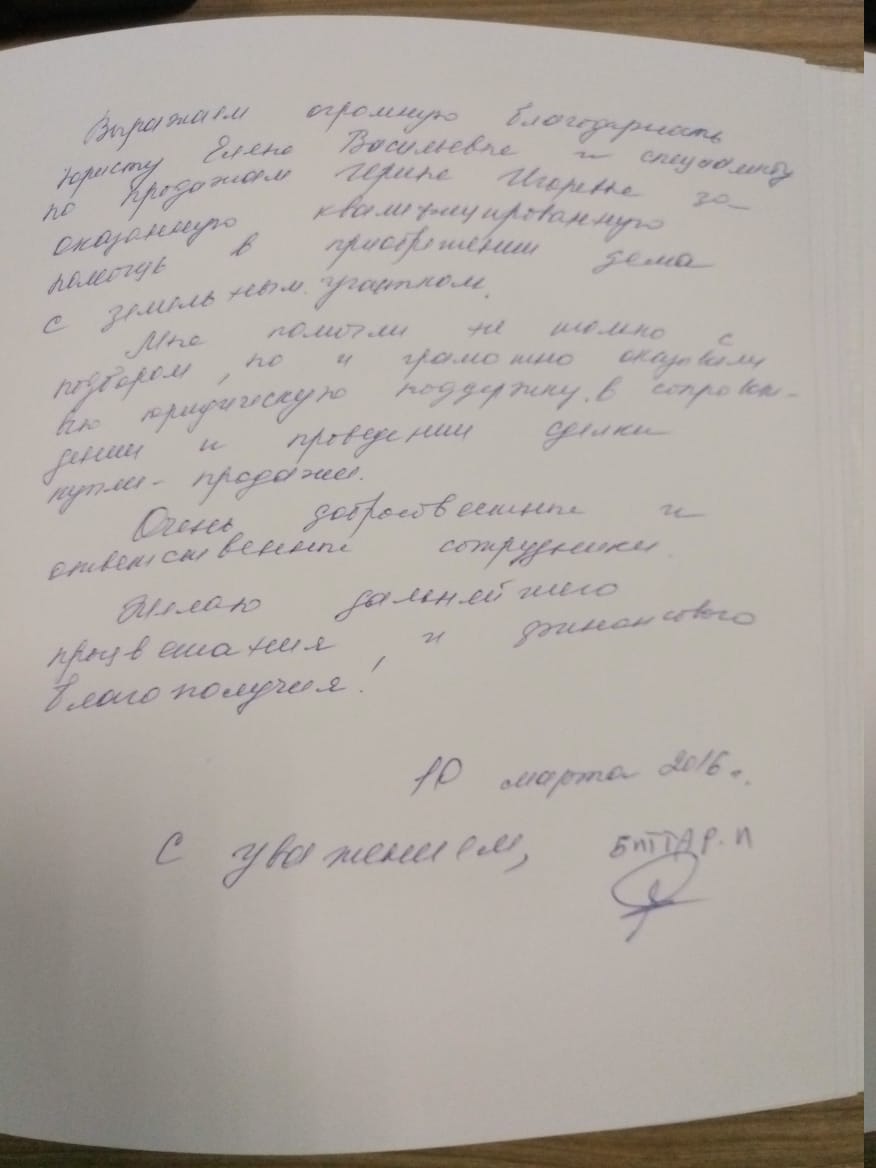 Выражаем огромную благодарность
юристу Елене Васильевне и специалисту
по продажам Ирине Игоревне за
оказанную квалифицированную
помощь в приобретении дома
с земельным участком.
Мне помогли не только с
подбором, но и грамотно оказывали
всю юридическую поддержку в сопровож-
дении и проведении сделки
купли-продажи.
Очень доброжелательные и
ответственные сотрудники.
Желаю дальнейшего
процветания и финансового
благополучия!
10 марта 2016 г.
С уважением, БИТТАР. И